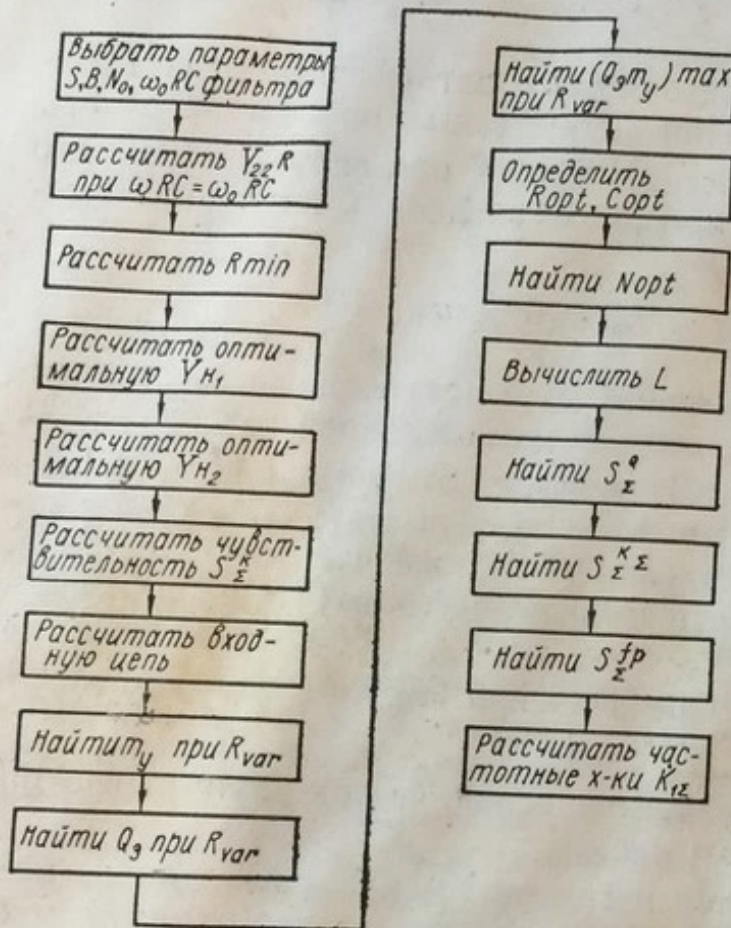 Выбрать параметры
S, B, N₀, ω₀RC фильтра
Рассчитать Y₂₂R
при ωRC=ω₀RC
Рассчитать Rmin
Рассчитать опти-
мальную Yн₁
Рассчитать опти-
мальную Yн₂
Рассчитать чувст-
вительность S_Σ^K
Рассчитать вход-
ную цепь
Найти m_y при R_var
Найти Q_э при R_var
Найти (Q_э m_y) max
при R_var
Определить
Ropt, Copt
Найти Nopt
Вычислить L
Найти S_Σ^Q
Найти S_Σ^KΣ
Найти S_Σ^fp
Рассчитать час-
тотные х-ки K₁Σ